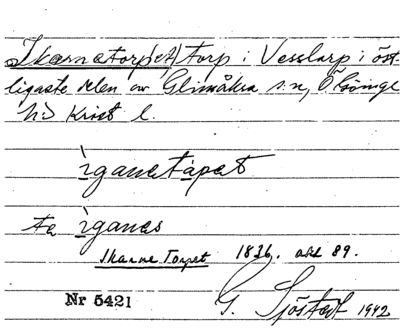 Ikarnatorp(et) torp i Vesslarp i öst-
ligaste delen av Glimåkra s:n, Ö Göinge
hd Krist l.
ìganetápet
te ìganes
Ikarne Torpet 1836. akt 89.
Nr 5421
G. Sjöstedt 1942